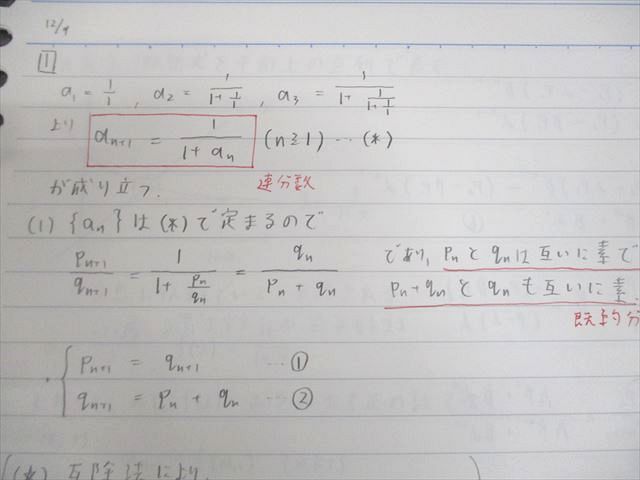 12/9
1
a₁ = 1/1 , a₂ = 1/(1+1/1) , a₃ = 1/(1+1/(1+1/1))
より a_{n+1} = 1/(1+a_n) (n≧1) … (*)
が成り立つ. 連分数
(1) {a_n} は (*) で定まるので
p_{n+1}/q_{n+1} = 1/(1+p_n/q_n) = q_n/(p_n+q_n) であり, p_n と q_n は互いに素で
p_n+q_n と q_n も互いに素.
既約分
{ p_{n+1} = q_{n+1} … ①
q_{n+1} = p_n + q_n … ②
(*) 互除法により,